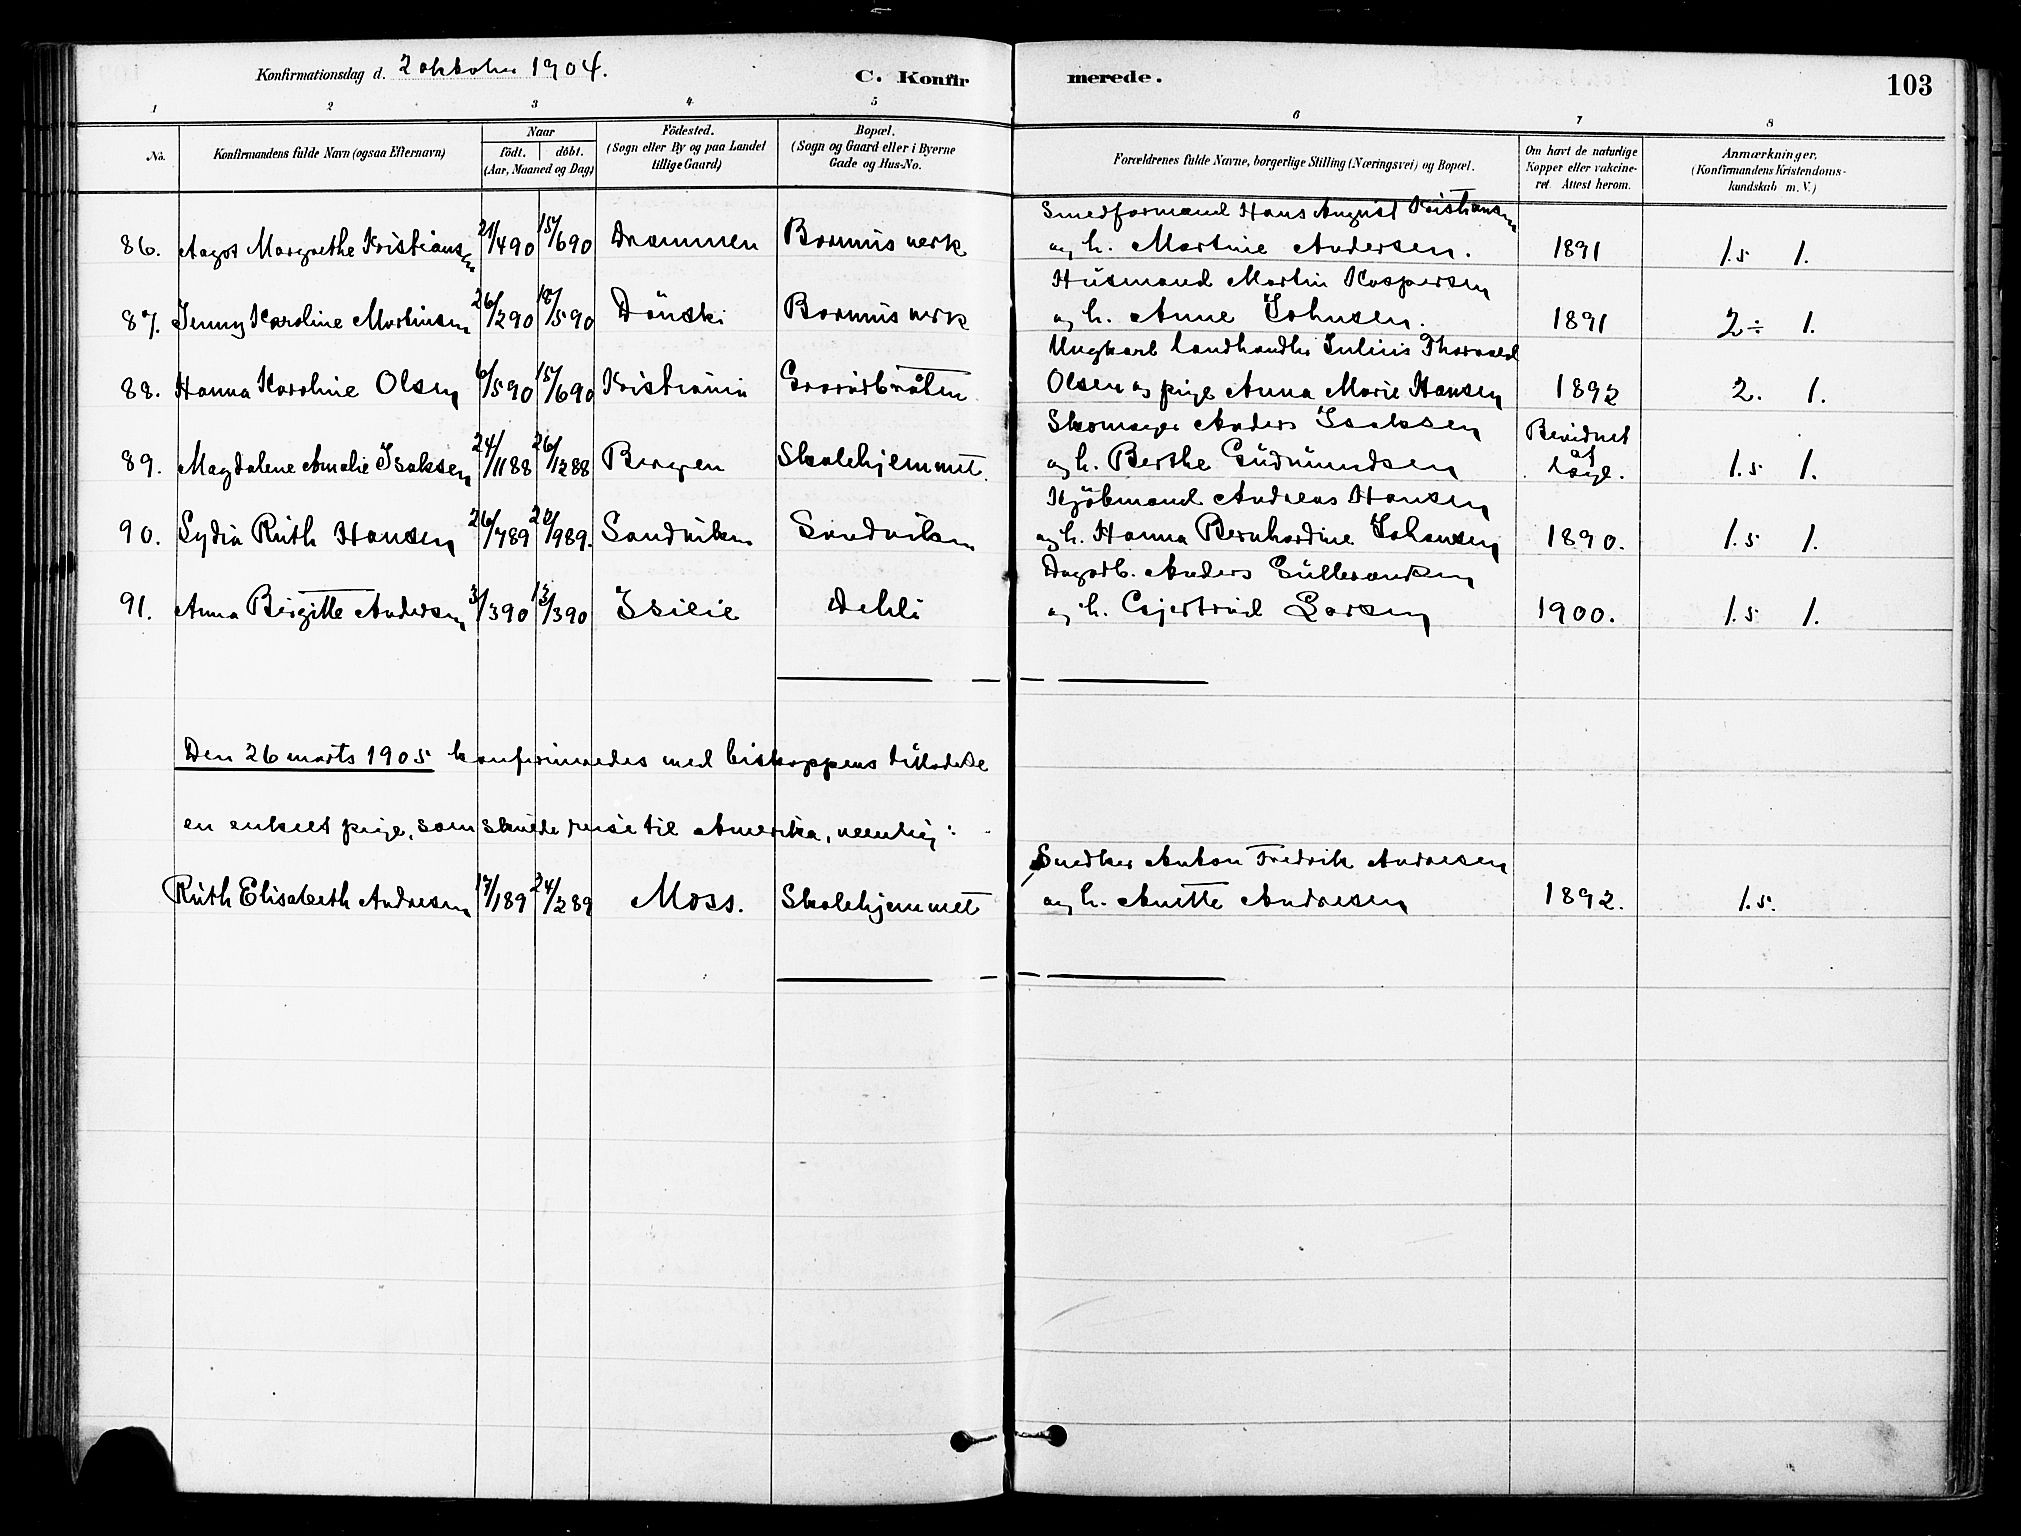 Konfirmationsdag d. 2 oktober 1904.
C. Konfir merede.
103
1 2 3 4 5 6 7 8
No.
Konfirmandens fulde Navn (ogsaa Efternavn)
Naar
födt. döbt.
(Aar, Maaned og Dag)
Födested.
(Sogn eller By og paa Landet
tillige Gaard)
Bopæl.
(Sogn og Gaard eller i Byerne
Gade og Hus-No.
Forældrenes fulde Navne, borgerlige Stilling (Næringsvei) og Bopæl.
Om havt de naturlige
Kopper eller vakcine-
ret. Attest herom.
Anmærkninger.
(Konfirmandens Kristendoms-
kundskab m. V.)
Smedformand Hans August Kristiansen
86. Aagot Margrethe Kristiansen 21/4 90 15/6 90 Drammen Bærums verk og h. Martine Andersen. 1891 1.5 1.
Husmand Martin Kaspersen
87. Jenny Karoline Martinsen 26/2 90 18/5 90 Dönski Bærums verk og h. Anne Johnsen. 1891 2 ÷ 1.
Ungkarl landhandler Julius Thorvald
88. Hanna Karoline Olsen 6/5 90 15/6 90 Kristiania Olsen og pige Anna Marie Hansen 1892 2. 1.
Skomager Anders Isaksen Bevidnet
89. Magdalene Amalie Isaksen 24/11 88 26/12 88 Bergen Skolehjemmet. og h. Berthe Gudmundsen af læge. 1.5 1.
Kjöbmand Andreas Hansen
90. Lydia Ruth Hansen 26/7 89 /9 89. Sandviken Sandviken og h. Hanna Bernhardine Johansen 1890. 1.5 1.
Dagarb. Anders Gulleranksen
91. Anna Birgitte Andersen 3/3 90 13/3 90 Isilie Dehli og h. Gjertrud Larsen 1900. 1.5 1.
Den 26 marts 1905 konfirmeredes med biskoppens tilladelse
en enkelt pige, som skulde reise til Amerika, nemlig:
Snedker Anton Fredrik Andresen
Ruth Elisabeth Andresen 17/1 89 24/2 89 Moss. Skolehjemmet og h. Anette Andresen 1892. 1.5.